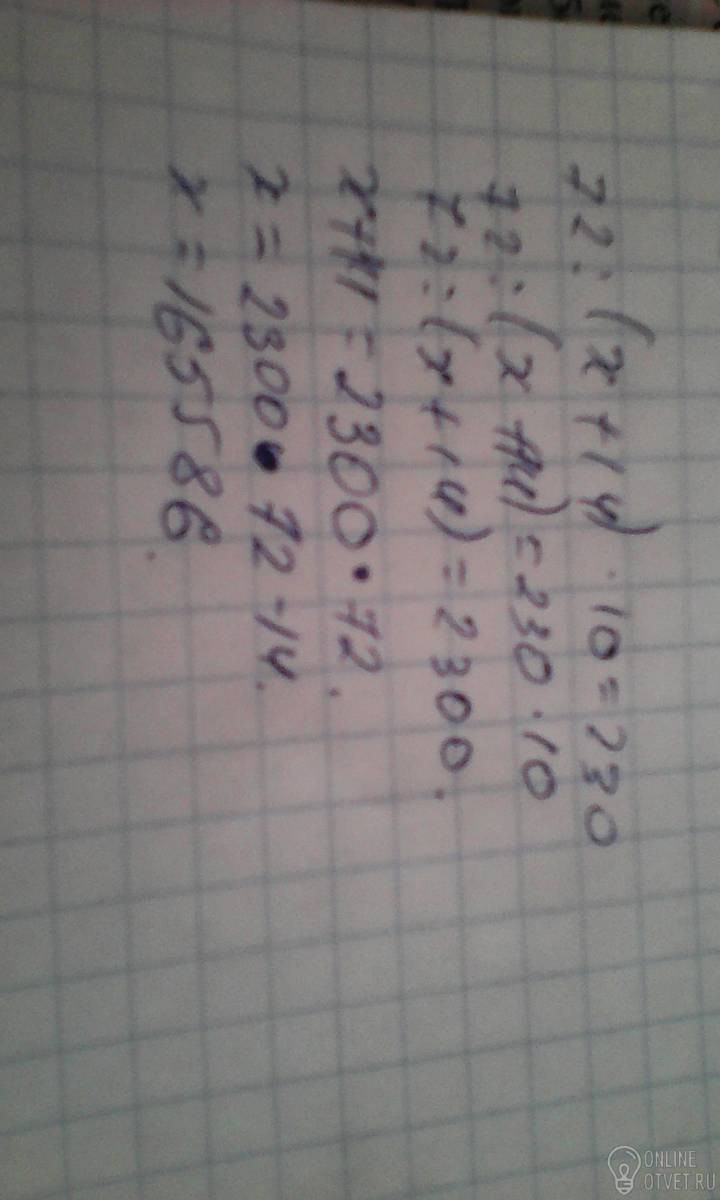 72 : (x + 14) · 10 = 230
72 : (x + 14) = 230 · 10
72 : (x + 14) = 2300.
x + 14 = 2300 · 72.
x = 2300 · 72 - 14.
x = 165586.
ONLINE
OTVET.RU